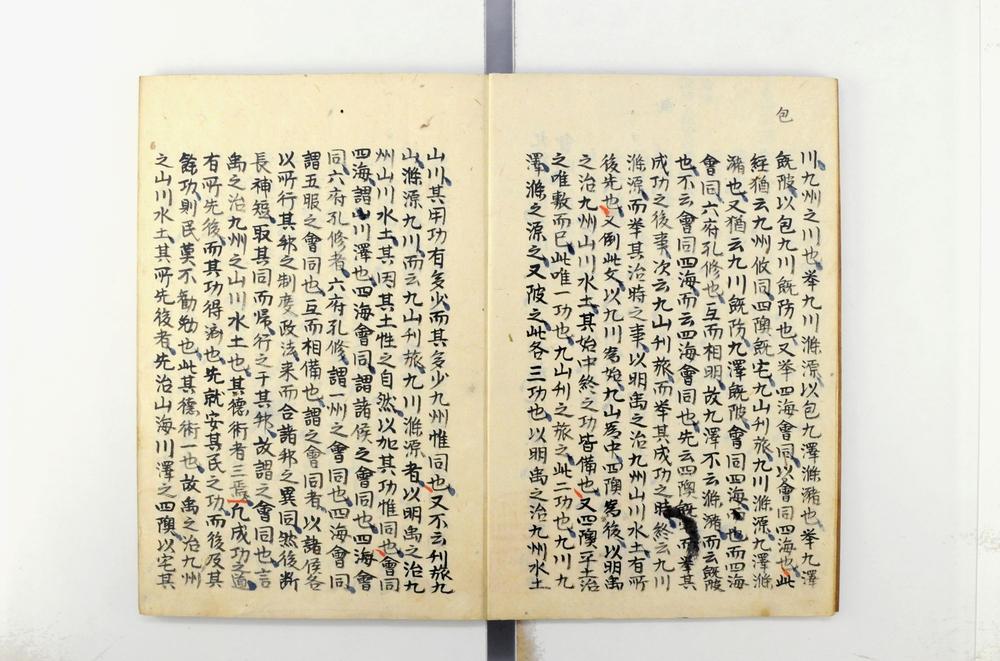 包
川九州之川也挙九川滌源以包九澤滌瀦也挙九澤
既陂以包九川既防也又挙四海會同以會同四海也此
経猶云九州攸同四隩既宅九山刊旅九川滌源九澤滌
瀦也又猶云九川既防九澤既陂會同四海也而四海
會同六府孔修也互而相明故九澤不云滌瀦而云既陂
也不云會同四海而云四海會同也先云四隩既而挙其
成功之後事次云九山刊旅而挙其成功之時終云九川
滌源而挙其治時之事以明禹之治九州山川水土有所
後先也又倒此文以九川為始九山為中四隩為後以明禹
之治九州山川水土其始中終之功皆備也又四隩平治
之唯敷而已此唯一功也九山刊之旅之此二功也九川九
澤滌之源之又陂之此各三功也以明禹之治九州水土
山川其用功有多少而其多少九州惟同也又不云刊旅九
山滌源九川而云九山刊旅九川滌源者以明禹之治九
州山川水土其因其土性之自然以加其功惟同也會同
四海謂山川澤也四海會同謂諸侯之會同也四海會
同六府孔修者六府孔修謂一州之會同也四海會同
謂五服之會同也互而相備也謂之會同者以諸侯各
以所行其邦之制度政法来而合諸邦之異同然後断
長補短取其同而帰行之于其邦故謂之會同也言
禹之治九州之山川水土也其德術者三焉凡成功之道
有所先後而其功得済也先就安其民之功而後及其
餘功則民莫不勧勉也此其德術一也故禹之治九州
之山川水土其所先後者先治山海川澤之四隩以宅其